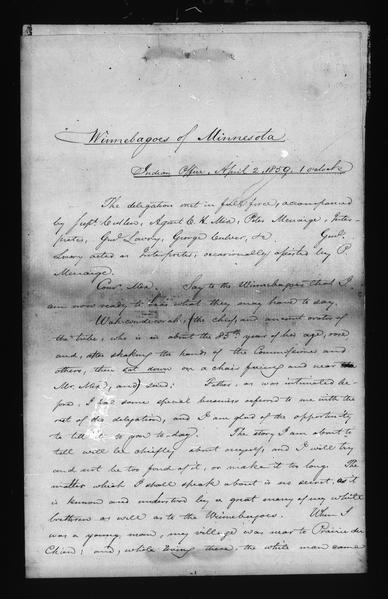 Winnebagoes of Minnesota
Indian Office, April 2, 1859, 1 o'clock
The delegation met in full force, accompanied
by Supt. Cullen, Agent C. H. Mix, Peter Menaige, Inter-
preter, Geo. Lowry, George Culver, &c. Geo.
Lowry acted as Interpreter, occasionally assisted by P.
Menaige.
Com. Mix. Say to the Winnebagoes that I
am now ready to hear what they may have to say.
the chief and ancient orator of
the tribe, who is in about the 85th year of his age, rose
and, after shaking the hands of the Commissioner and
others, then sat down on a chair facing and near
Mr. Mix, and said: Father, as was intimated be-
fore, I had some special business referred to me with the
rest of the delegation, and I am glad of the opportunity
to tell it to you to-day. The story I am about to
tell will be chiefly about myself, and I will try
and not be too fond of it, or make it too long. The
matter which I shall speak about is no secret, as it
is known and understood by a great many of my white
brethren as well as to the Winnebagoes. When I
was a young man, my village was near to Prairie du
Chien; and, while living there, the white man came